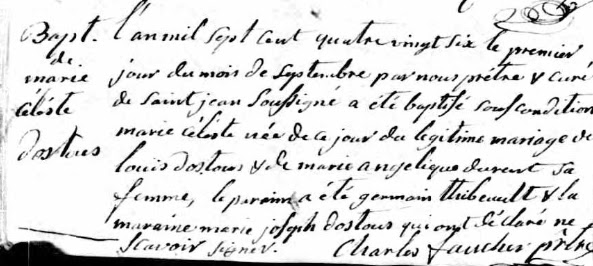 Bapt.
de
marie
céleste
dostous
l'an mil sept cent quatre vingt six le premier
jour du mois de septembre par nous prêtre & curé
de saint jean soussigné a été baptisé sous condition
marie céleste née de ce jour du legitime mariage de
louis dostous & de marie angelique durent sa
femme, le parain a été germain thibeault & la
maraine marie joseph dostous qui ont déclaré ne
scavoir signer. Charles faucher prêtre